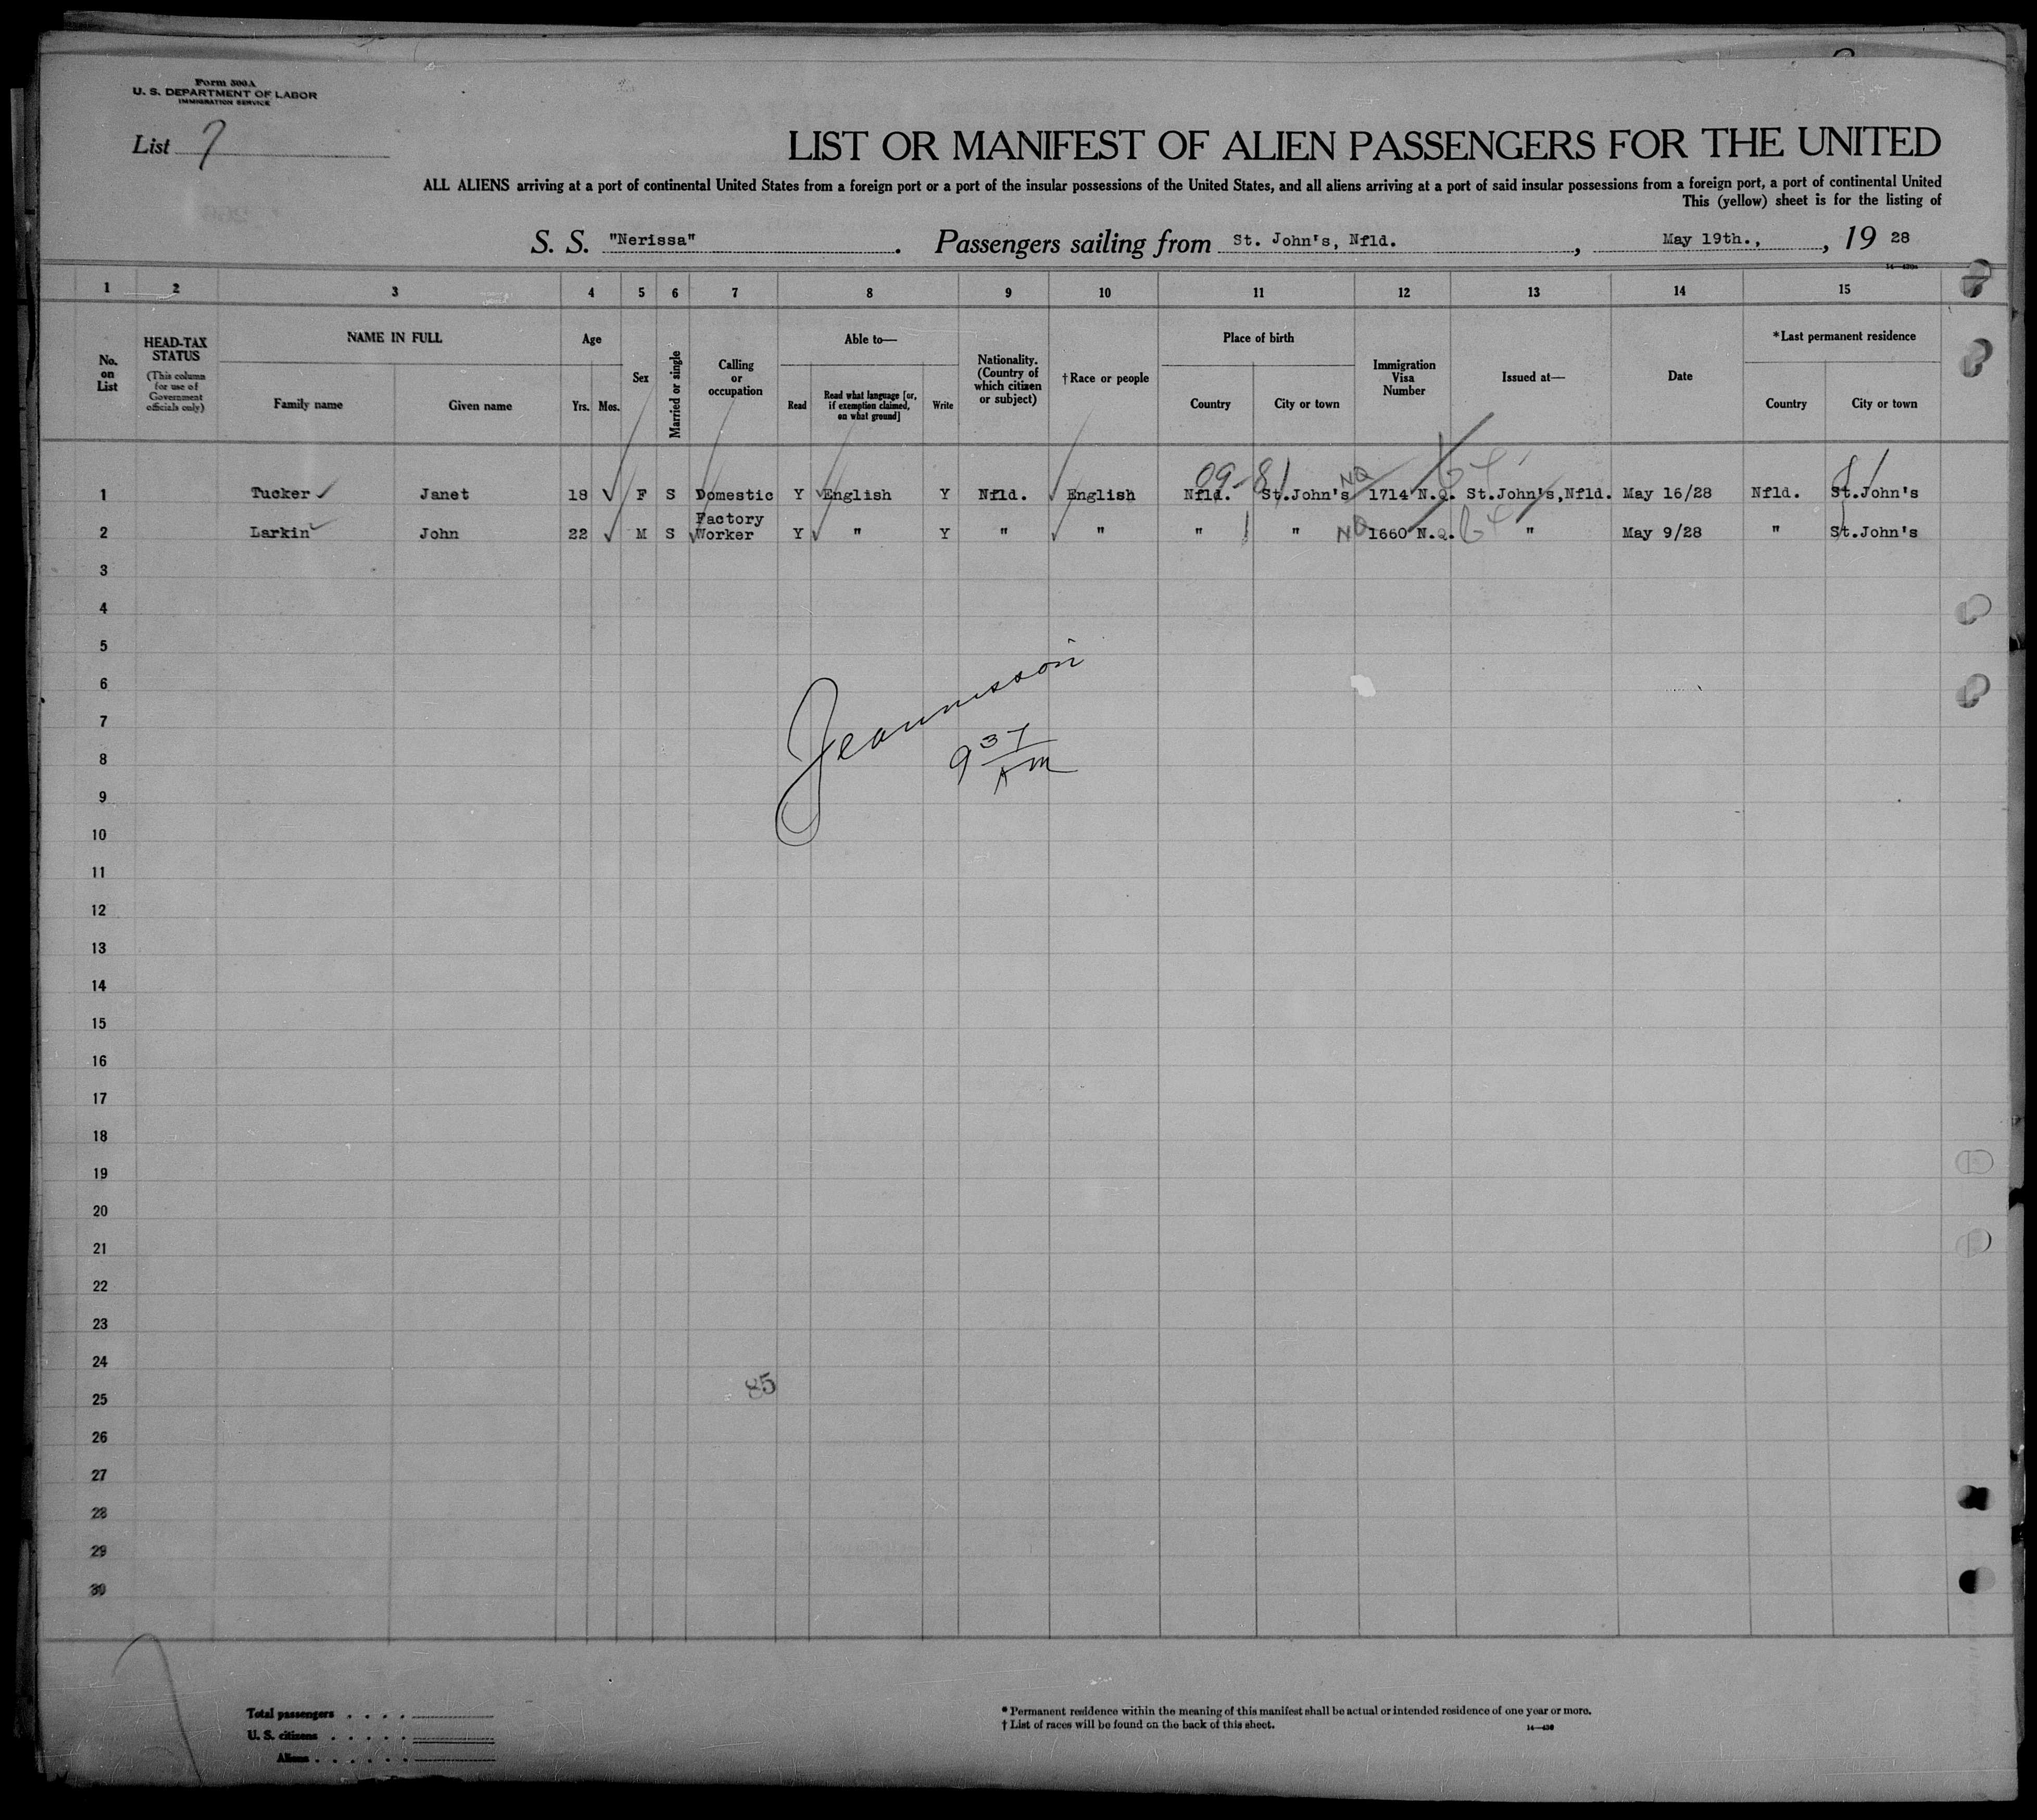 Form 500A
U. S. DEPARTMENT OF LABOR
IMMIGRATION SERVICE
List 7
LIST OR MANIFEST OF ALIEN PASSENGERS FOR THE UNITED
ALL ALIENS arriving at a port of continental United States from a foreign port or a port of the insular possessions of the United States, and all aliens arriving at a port of said insular possessions from a foreign port, a port of continental United
This (yellow) sheet is for the listing of
S. S. "Nerissa" . Passengers sailing from St. John's, Nfld. , May 19th., , 19 28
1 2 3 4 5 6 7 8 9 10 11 12 13 14 15
No. on List
HEAD-TAX STATUS
(This column for use of Government officials only)
NAME IN FULL
Family name Given name
Age
Yrs. Mos.
Sex
Married or single
Calling or occupation
Able to—
Read
Read what language [or, if exemption claimed, on what ground]
Write
Nationality. (Country of which citizen or subject)
†Race or people
Place of birth
Country City or town
Immigration Visa Number
Issued at—
Date
*Last permanent residence
Country City or town
09-81 NQ 64
1 Tucker Janet 18 F S Domestic Y English Y Nfld. English Nfld. St.John's 1714 N.Q. St.John's,Nfld. May 16/28 Nfld. St.John's
2 Larkin John 22 M S Factory Worker Y " Y " " " " NQ 1660 N.Q. 64 " May 9/28 " St.John's
3
4
5
6
7
8
9 37 AM
9
10
11
12
13
14
15
16
17
18
19
20
21
22
23
24
85
25
26
27
28
29
30
Total passengers . . . .
U. S. citizens . . . . .
Aliens . . . . . .
* Permanent residence within the meaning of this manifest shall be actual or intended residence of one year or more.
† List of races will be found on the back of this sheet.
14—430